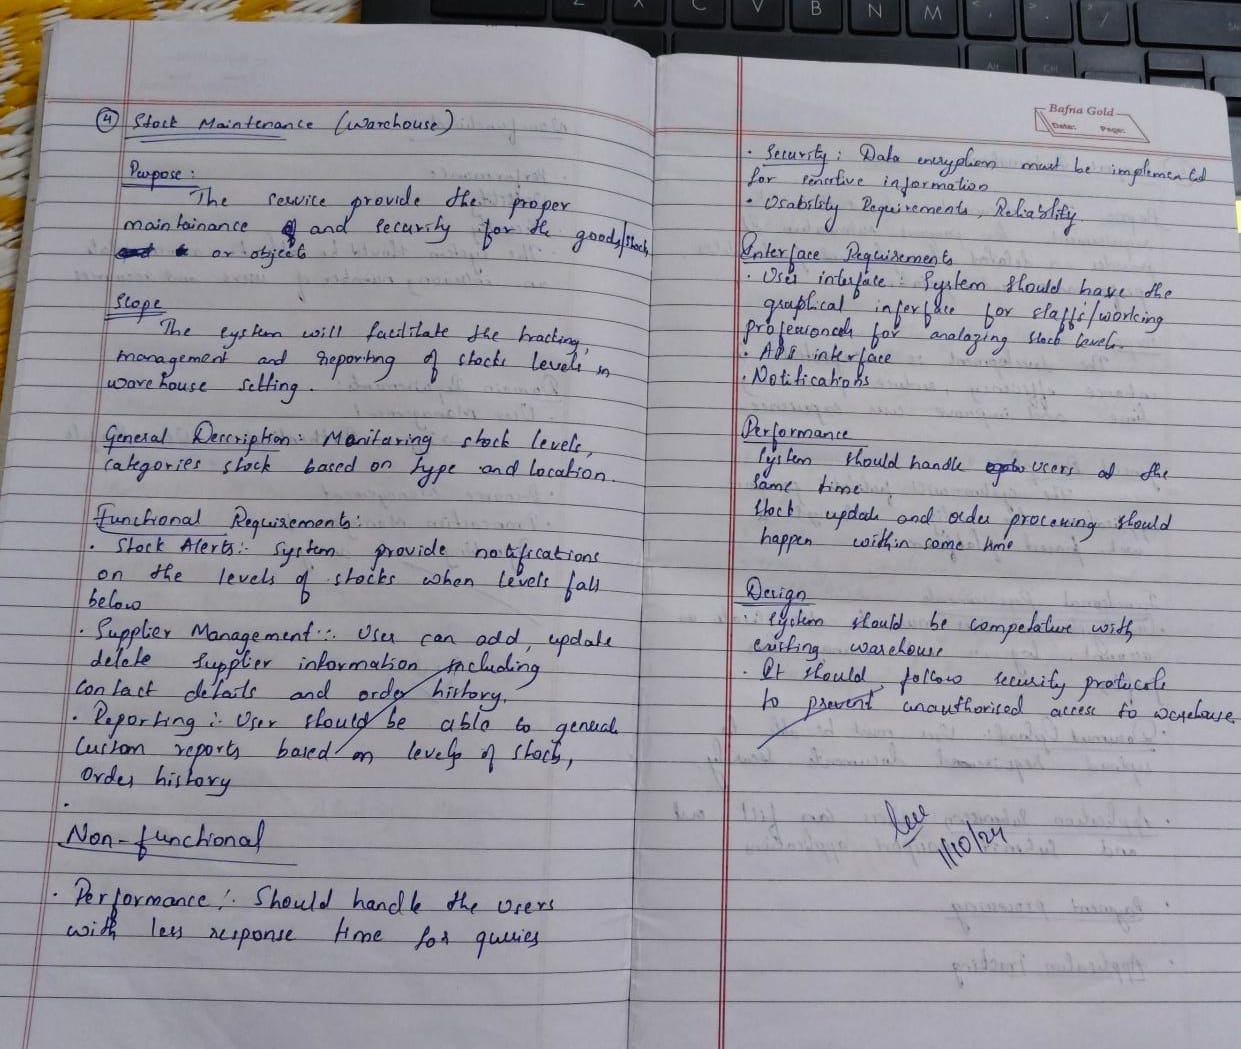 ④ Stock Maintenance (Warehouse)
Purpose :
The service provide the proper
maintainance and security for the goods/stock
or objects
Scope
The system will facilitate the tracking,
management and reporting of stocks levels in
warehouse setting.
General Description : Monitaring stock levels,
categories stock based on type and location.
Functional Requirements :
• Stock Alerts :- System provide notifications
on the levels of stocks when levels fall
below
• Supplier Management :- User can add, update
delete supplier information including
contact details and order history.
• Reporting :- User should be able to generate
custom reports based on levels of stock,
order history
•
Non-functional
• Performance :- Should handle the users
with less response time for queries
Bafna Gold
Date: Page:
• Security : Data encryption must be implemented
for sensitive information
• Usability Requirements, Reliability.
Interface Requirements
• User interface : System should have the
graphical inferface for staffs/working
professionals for analazing stock levels.
• API interface
• Notifications
Performance
System should handle users at the
same time
Stock update and order processing should
happen within some time
Design
• System should be competative with
existing warehouse
• It should follow security protocols
to prevent unauthorised access to warehouse
1/10/24